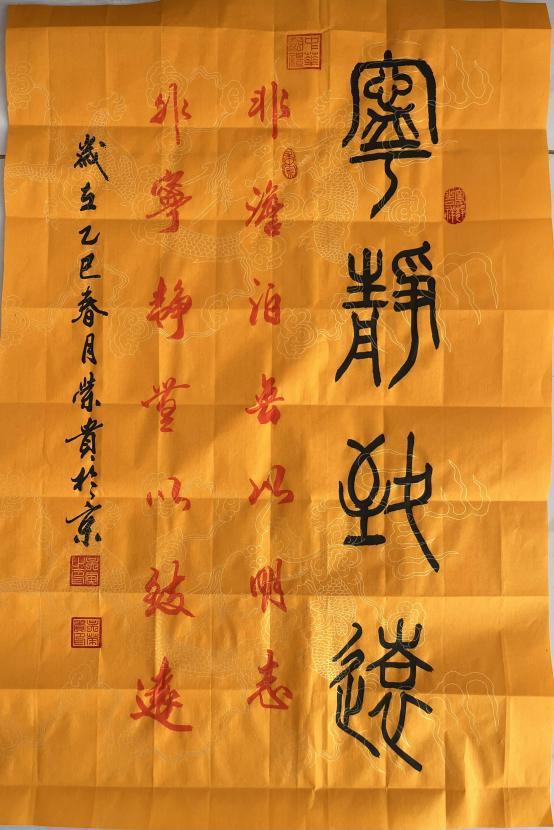 寧靜致遠
非澹泊無以明志
非寧静無以致遠
歲在乙巳春月榮貴於京